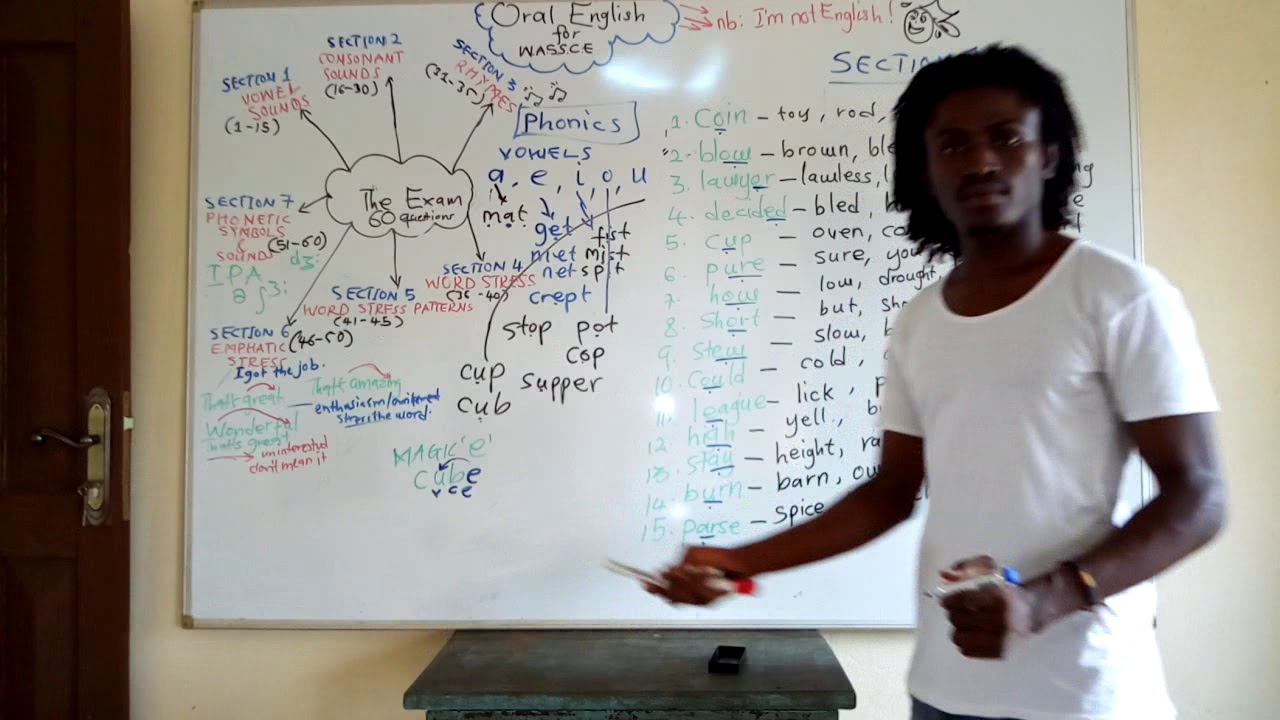 Oral English
for
WASSCE
nb: I'm not English!
SECTION 1
VOWEL
SOUNDS
(1-15)
SECTION 2
CONSONANT
SOUNDS
(16-30)
SECTION 3
RHYMES
(31-35)
The Exam
60 questions
SECTION 7
PHONETIC
SYMBOLS
&
SOUNDS
(51-60)
IPA
SECTION 4
WORD STRESS
(36-40)
SECTION 5
WORD STRESS PATTERNS
(41-45)
SECTION 6
(46-50)
EMPHATIC
STRESS
I got the job.
That's great
That's amazing
enthusiasm/excitement
stress the word.
Wonderful
That's great
uninterested
don't mean it
Phonics
VOWELS
a, e, i, o, u
mat
get
fist
met mist
net spit
crept
stop pot
cop
cup supper
cub
MAGIC 'e'
cube
v c e
SECTION
1. Coin – toy, rod,
2. blow – brown,
3. lawyer – lawless,
4. decided – bled,
5. cup – oven,
6. pure – sure,
7. how – low, drought,
8. short – but,
9. stew – slow,
10. Could – cold,
11. league – lick,
12. – yell,
13. stay – height,
14. burn – barn,
15. parse – spice